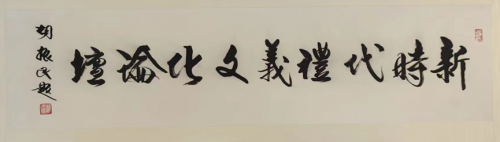 新時代禮義文化論壇
胡振民題